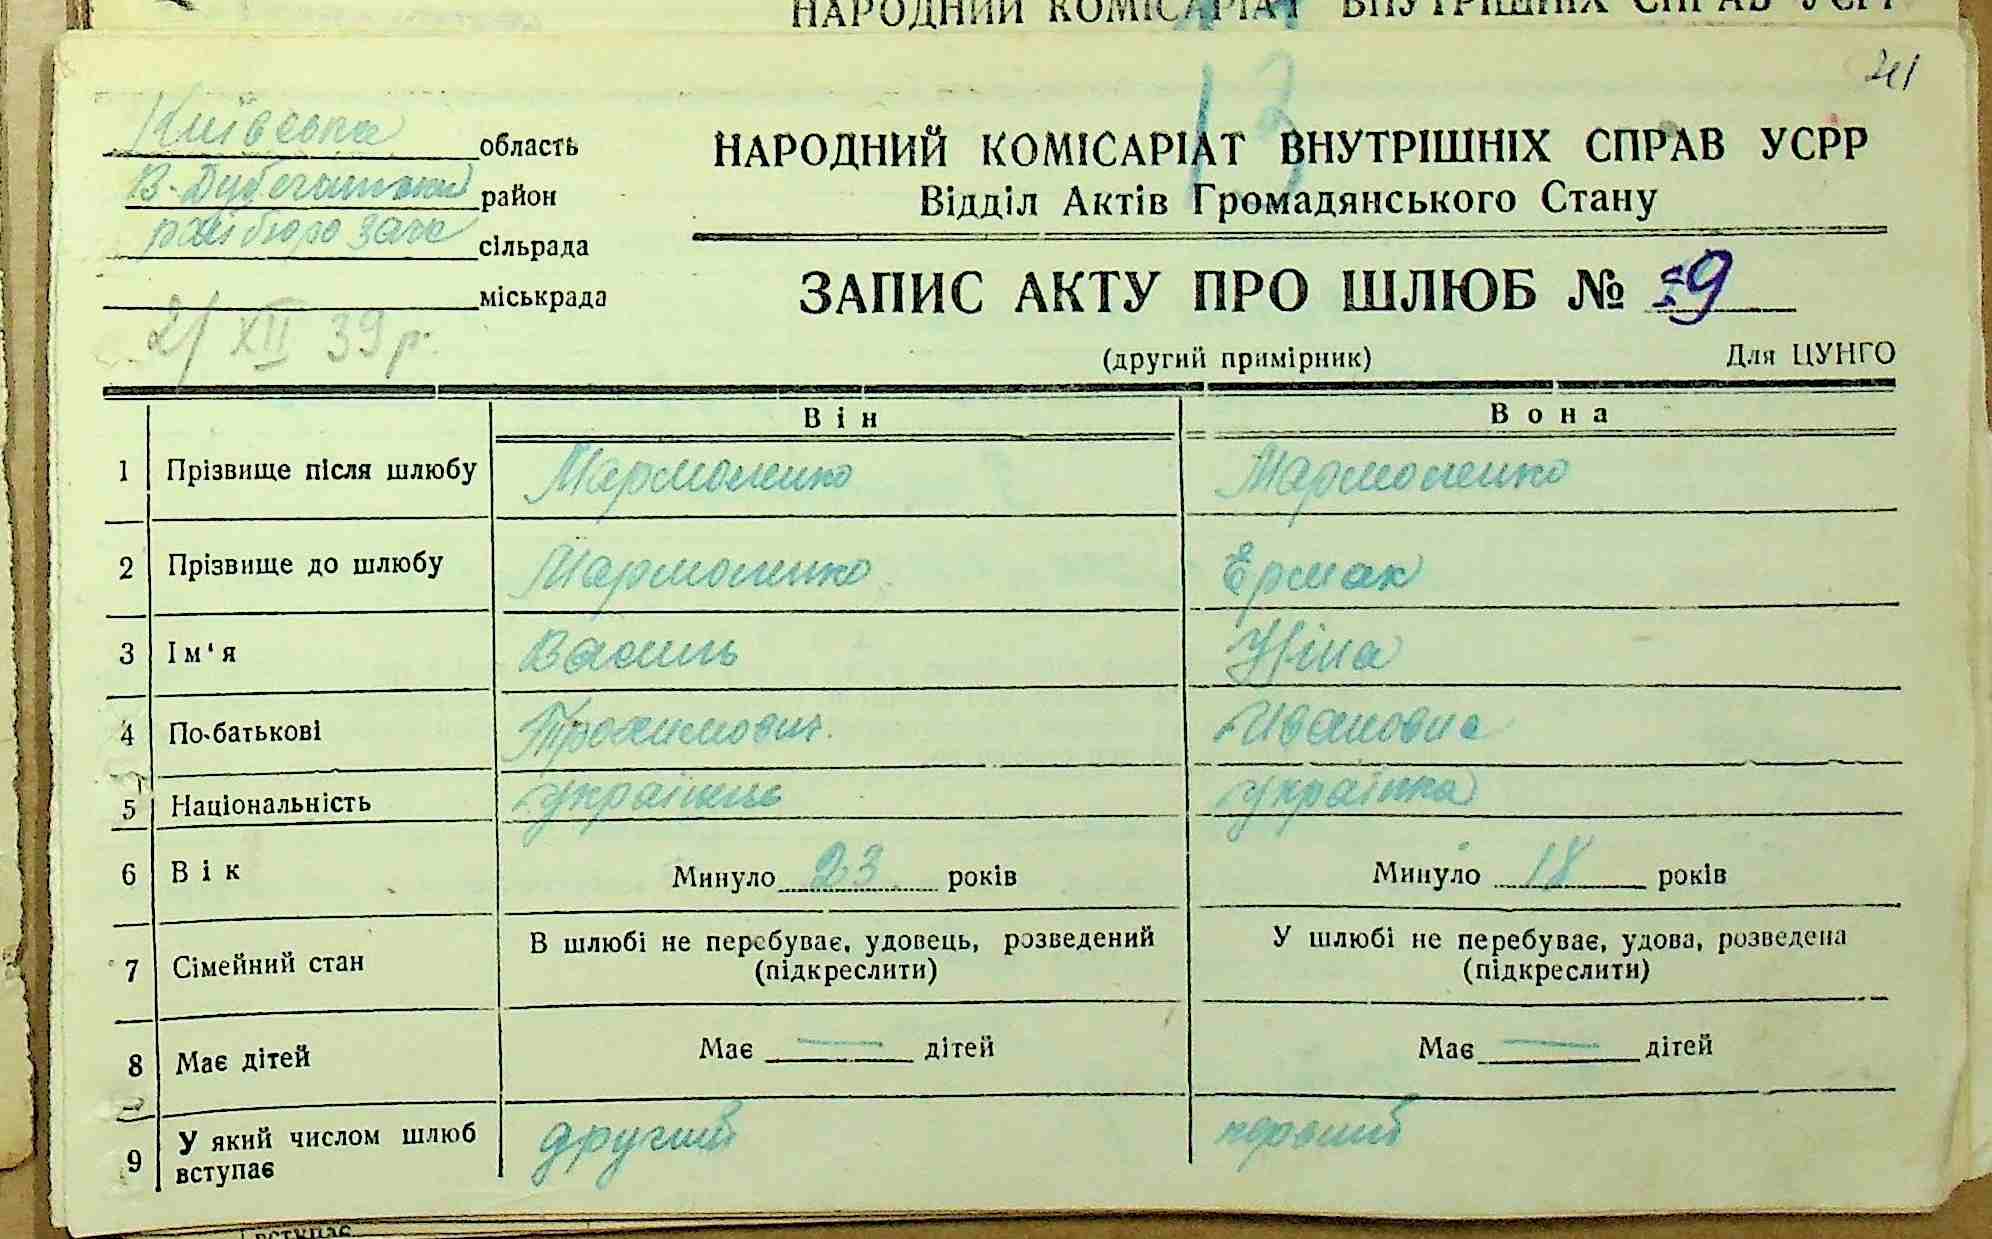 НАРОДНИЙ КОМІСАРІАТ ВНУТРІШНІХ СПРАВ УСРР
241
13
Київська область
В-Дубечанский район
рай бюро загс сільрада
міськрада
21 XII 39 р.
НАРОДНИЙ КОМІСАРІАТ ВНУТРІШНІХ СПРАВ УСРР
Відділ Актів Громадянського Стану
ЗАПИС АКТУ ПРО ШЛЮБ № 59
(другий примірник) Для ЦУНГО
Він Вона
1 Прізвище після шлюбу Мармоленко Мармоленко
2 Прізвище до шлюбу Мармоленко Ермак
3 Ім'я Василь Ніна
4 По-батькові Трохимович Ивановна
5 Національність українець українка
6 Вік Минуло 23 років Минуло 18 років
7 Сімейний стан В шлюбі не перебуває, удовець, розведений (підкреслити) У шлюбі не перебуває, удова, розведена (підкреслити)
8 Має дітей Має — дітей Має — дітей
9 У який числом шлюб вступає другий первий
вступає